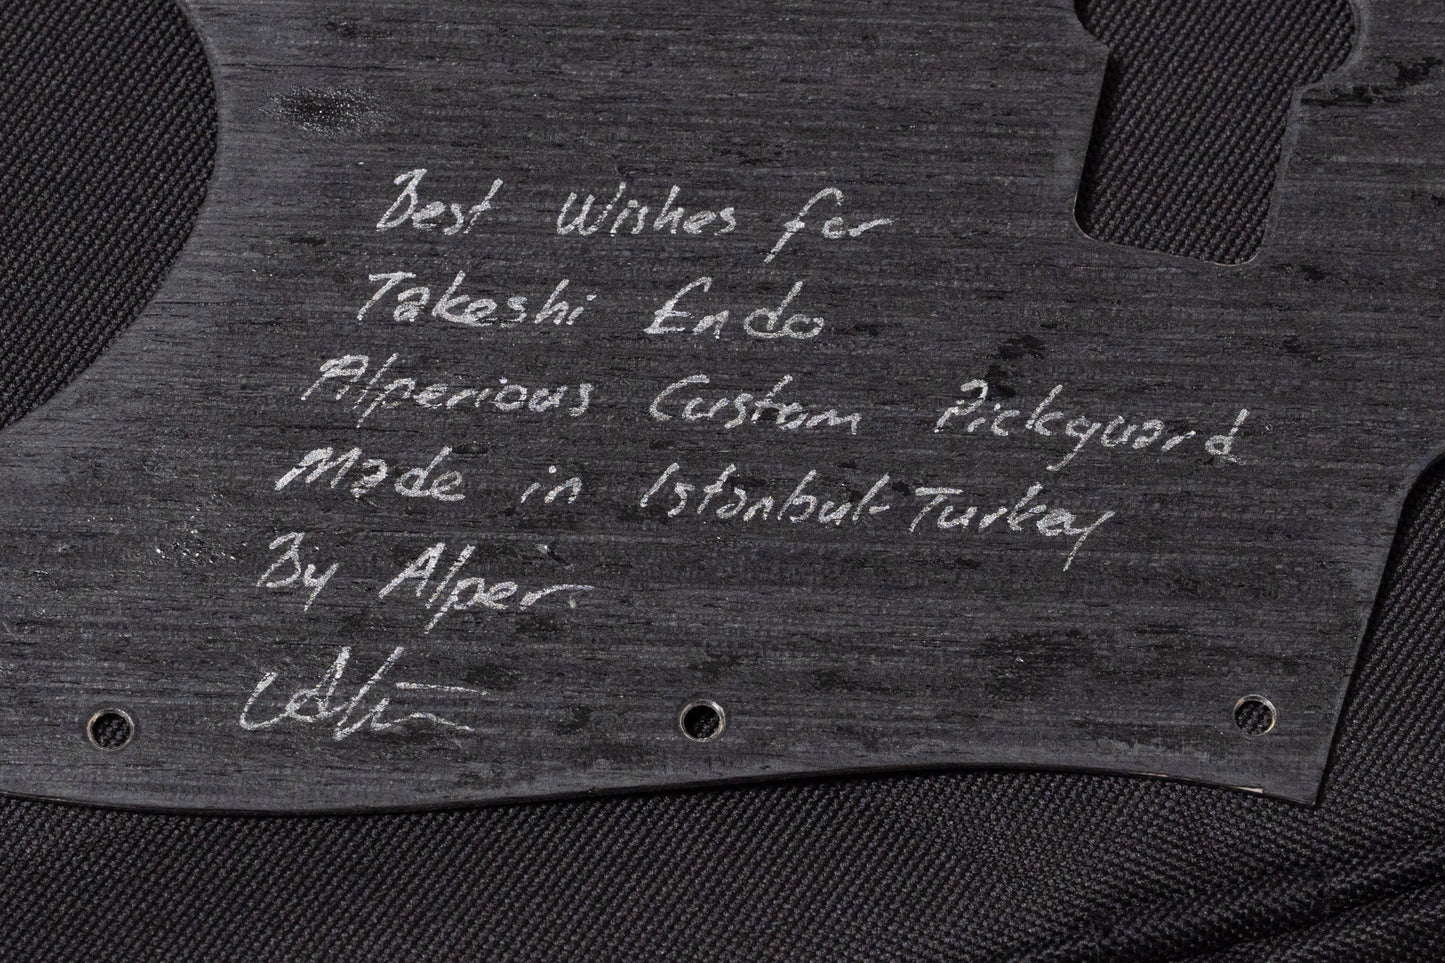 Best Wishes for
Takeshi Endo
Alperious Custom Pickguard
Made in Istanbul-Turkey
By Alper